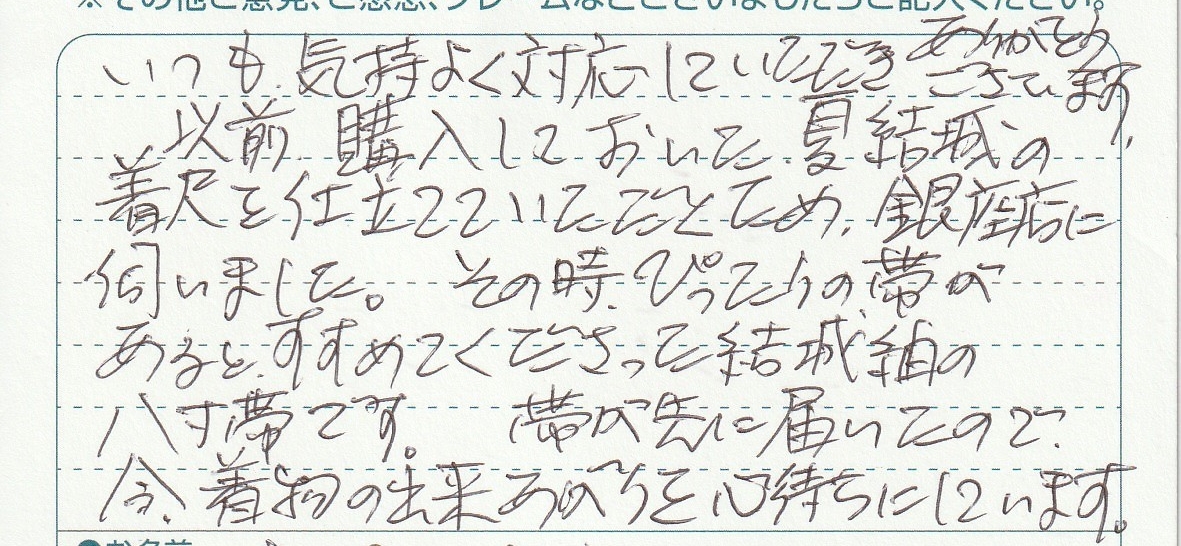 ※その他ご意見、ご感想、クレームなどございましたらご記入ください。
いつも気持よく対応していただき ありがとう
ございます。
以前、購入しておいた夏結城の
着尺を仕立てていただくため、銀座店に
伺いました。その時、ぴったりの帯が
あると、すすめてくださった結城紬の
八寸帯です。帯が先に届いたので、
今、着物の出来あがりを心待ちにしています。